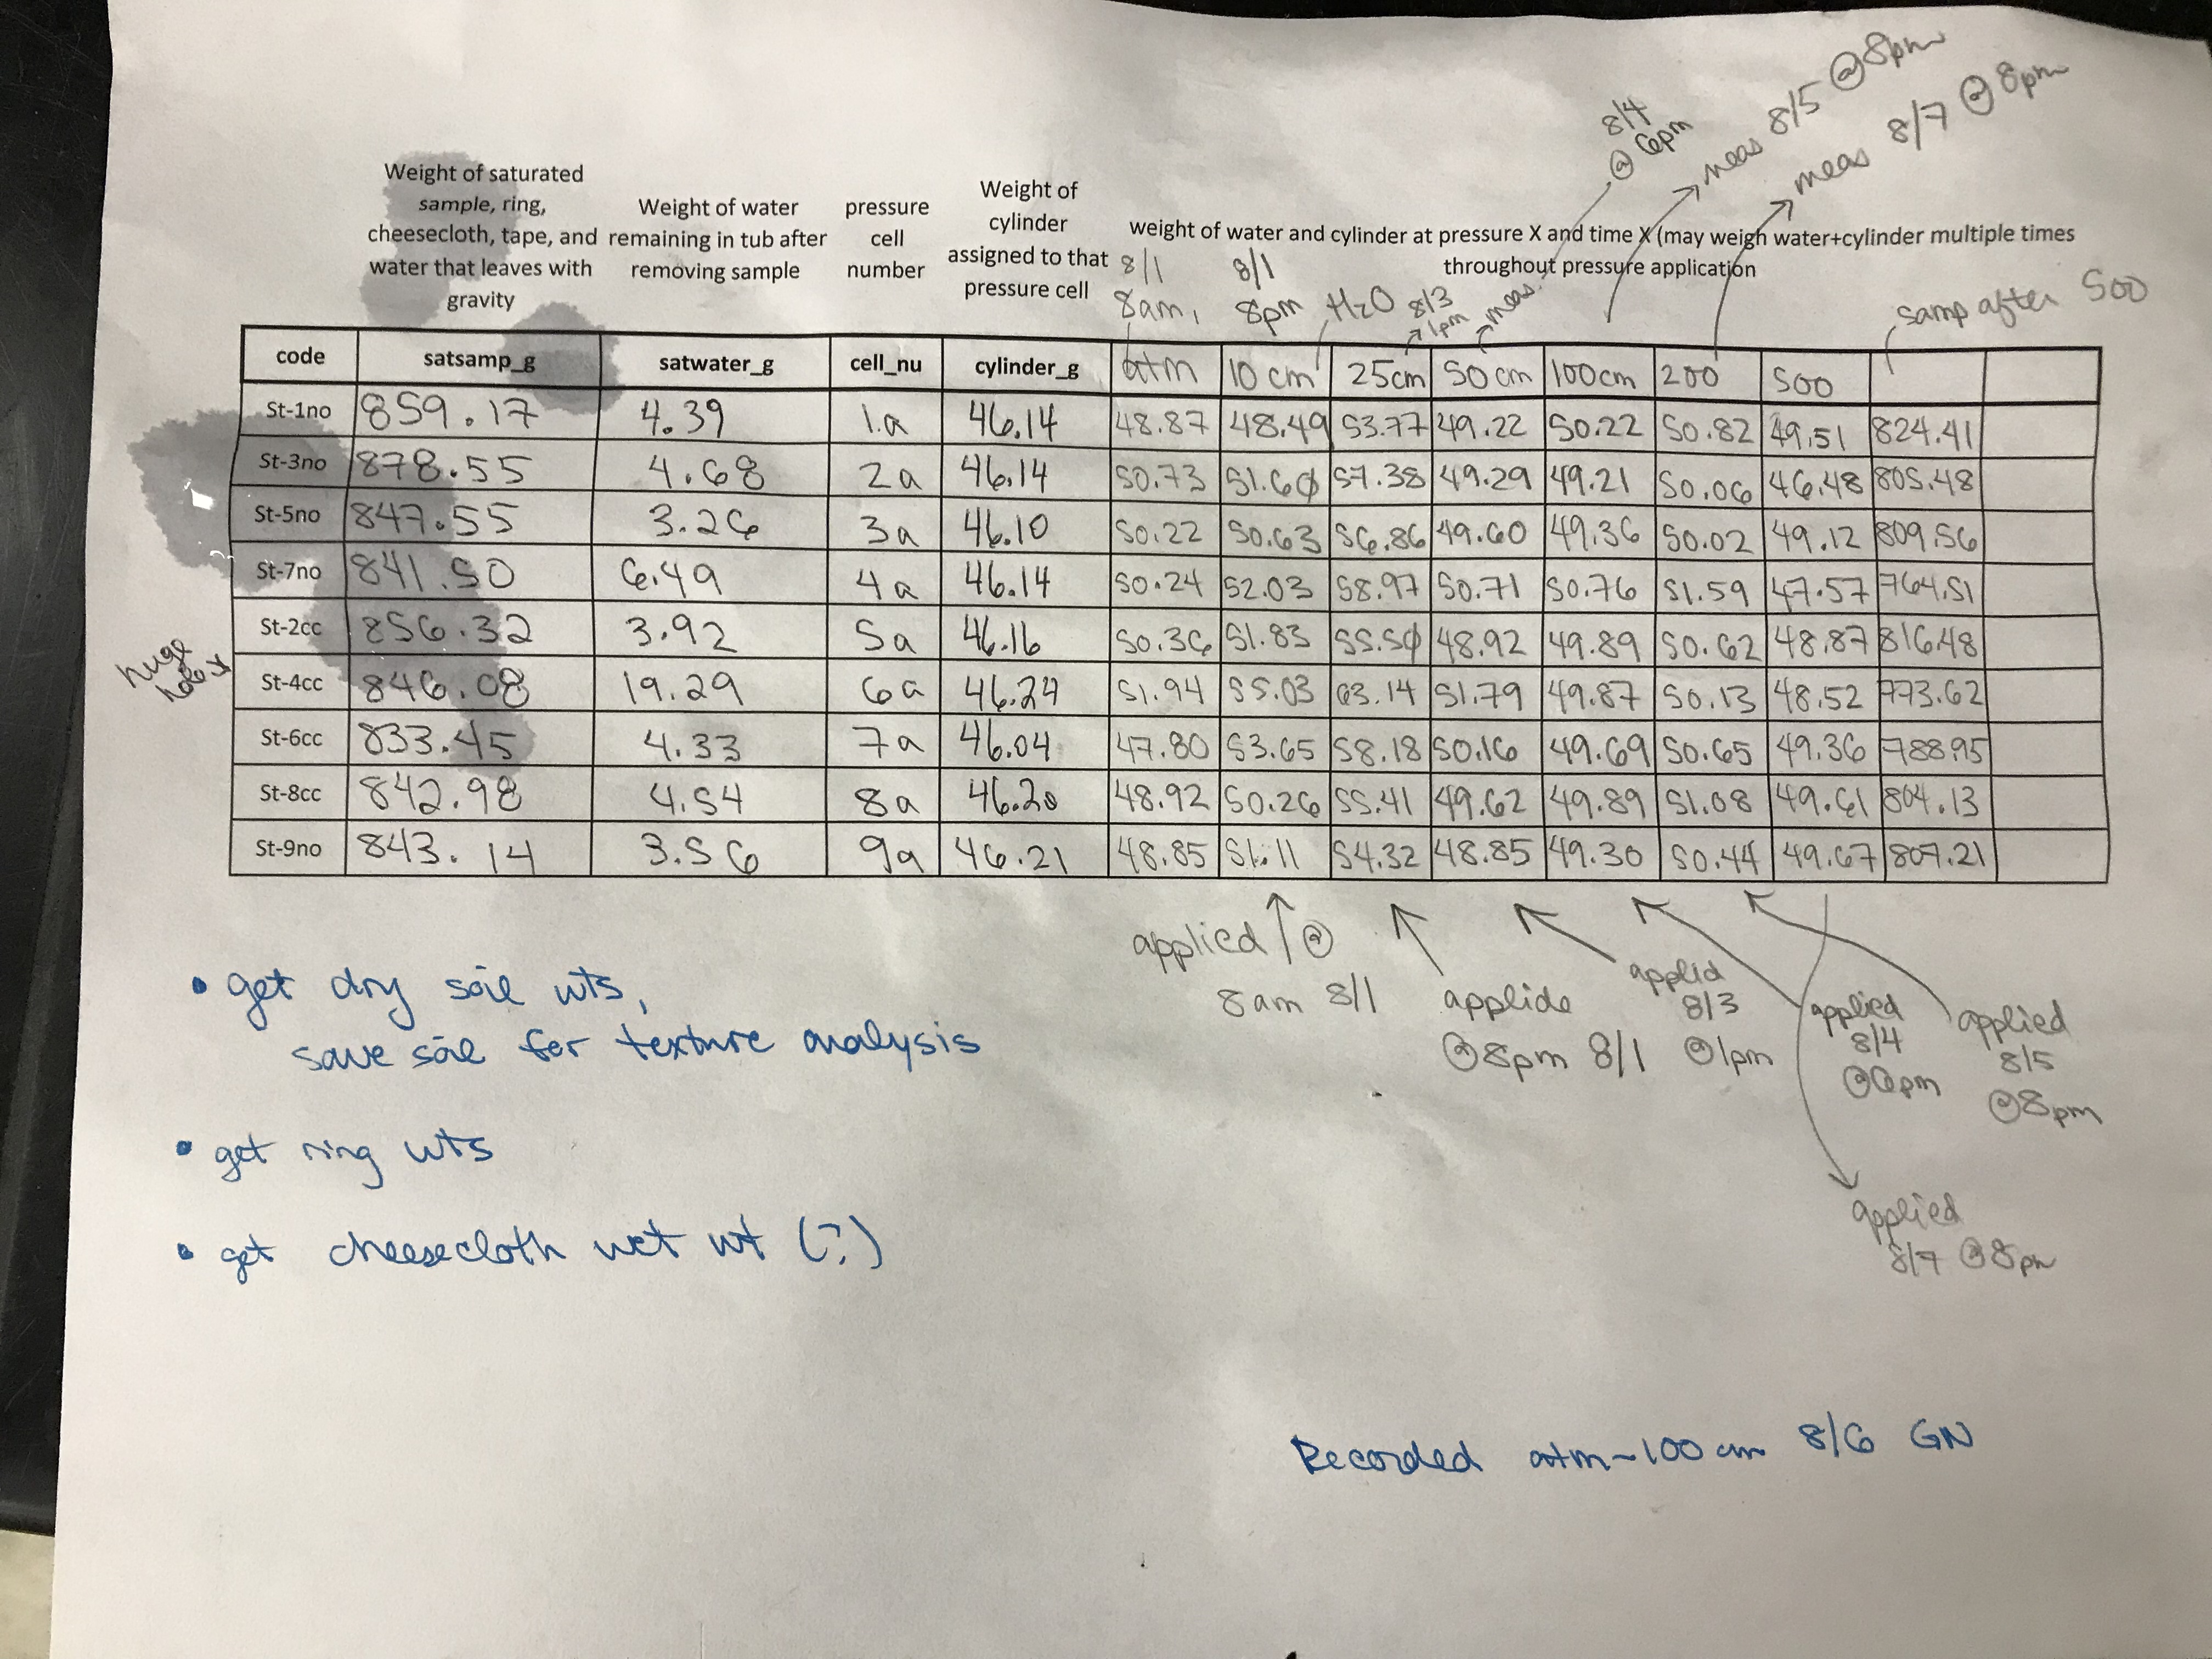 8/4
@ 6pm
meas 8/5 @ 8pm
meas 8/7 @ 8pm
Weight of saturated
sample, ring,
cheesecloth, tape, and
water that leaves with
gravity
Weight of water
remaining in tub after
removing sample
pressure
cell
number
Weight of
cylinder
assigned to that
pressure cell
weight of water and cylinder at pressure X and time X (may weigh water+cylinder multiple times
throughout pressure application
8/1
8am,
8/1
8pm
H2O
8/3
1pm
meas.
samp after 500
code satsamp_g satwater_g cell_nu cylinder_g atm 10 cm 25cm 50 cm 100cm 200 500
St-1no 859.17 4.39 1a 46.14 48.87 48.49 53.77 49.22 50.22 50.82 49.51 824.41
St-3no 878.55 4.68 2a 46.14 50.73 51.60 57.38 49.29 49.21 50.06 46.48 805.48
St-5no 847.55 3.26 3a 46.10 50.22 50.63 56.86 49.60 49.36 50.02 49.12 809.56
St-7no 841.50 6.49 4a 46.14 50.24 52.03 58.97 50.71 50.76 51.59 47.57 764.51
St-2cc 856.32 3.92 5a 46.16 50.36 51.83 55.50 48.92 49.89 50.62 48.87 816.48
huge
St-4cc 846.08 19.29 6a 46.24 51.94 55.03 63.14 51.79 49.87 50.13 48.52 773.62
St-6cc 833.45 4.33 7a 46.04 47.80 53.65 58.18 50.16 49.69 50.65 49.36 788.95
St-8cc 842.98 4.54 8a 46.20 48.92 50.26 55.41 49.62 49.89 51.08 49.61 804.13
St-9no 843.14 3.56 9a 46.21 48.85 51.11 54.32 48.85 49.30 50.44 49.67 807.21
applied @
8am 8/1
applide
@8pm 8/1
applid
8/3
@1pm
applied
8/4
@6pm
applied
8/5
@8pm
applied
8/7 @8pm
• get dry soil wts,
save soil for texture analysis
• get ring wts
• get cheesecloth wet wt (?)
Recorded atm-100 cm 8/6 GN